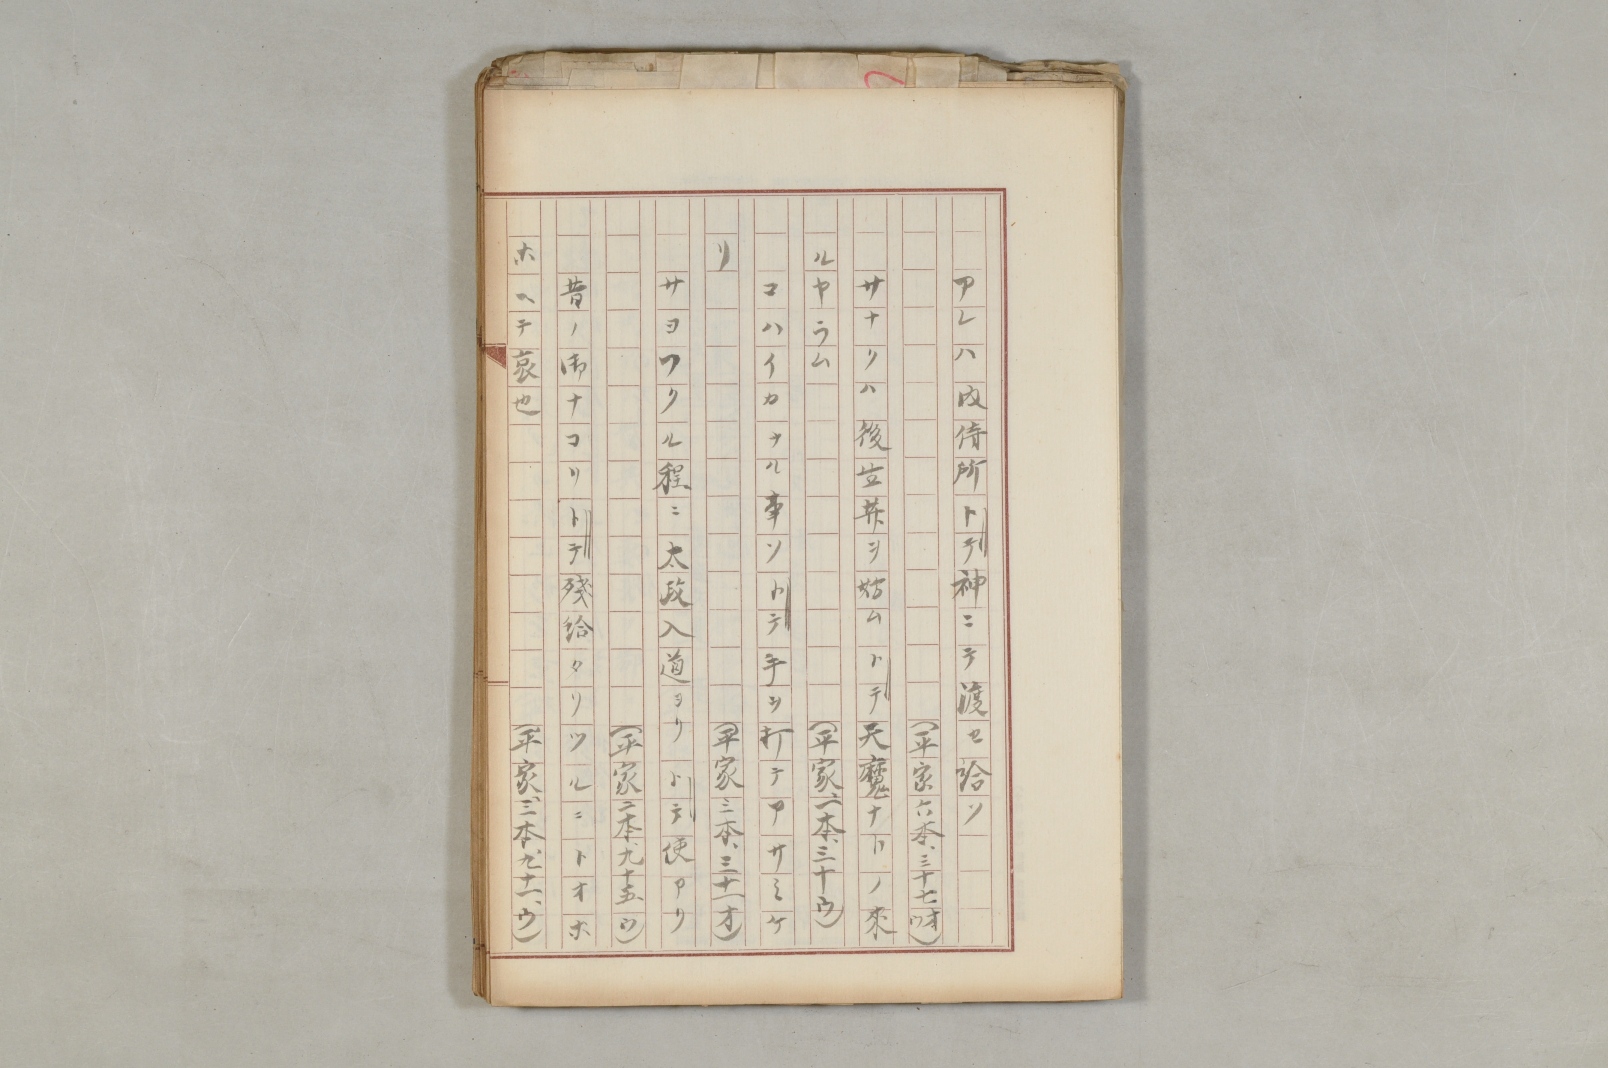 アレハ内侍所トテ神ニテ渡セ給ソ
(平家六本、三十七オウ)
サナクハ後世井ヲ妨ムトテ天魔ナトノ來
ルヤラム
(平家二本、三十ウ)
コハイカナル事ソトテ手ヲ打テアサミケ
リ
(平家三本、三十一オ)
サヨフクル程ニ太政入道ヨリトテ使アリ
(平家二本、九十五、ウ)
昔ノ御ナコリトテ殘給タリツルニトオホ
ホヘテ哀也
(平家、三本、九十一、ウ)